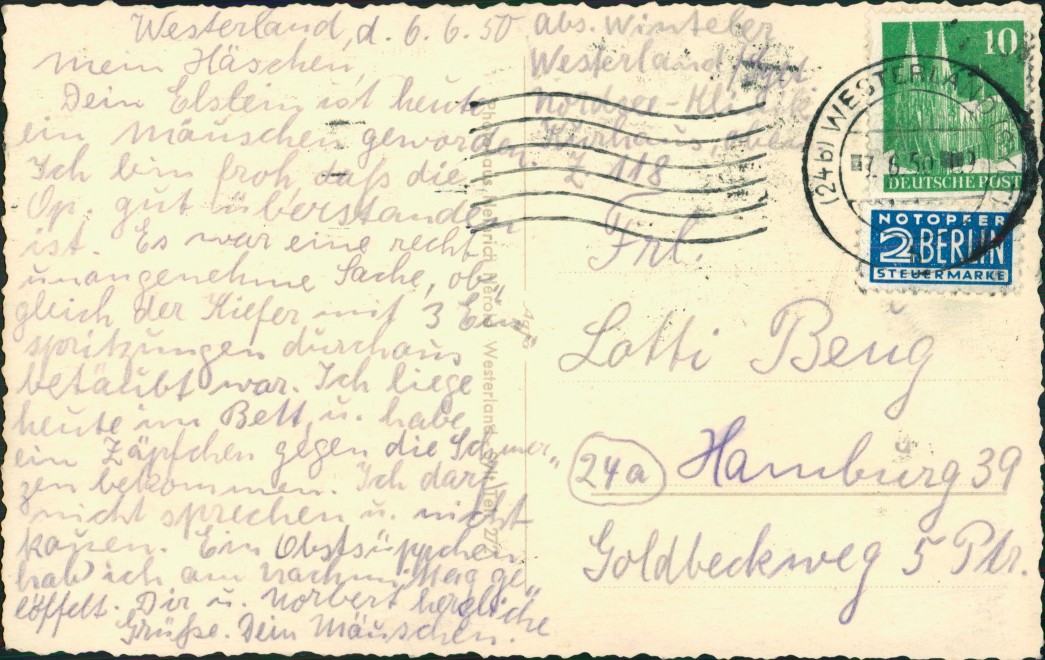 Westerland, d. 6.6.50
mein Häschen,
Dein Elstein ist heute
ein Mäuschen geworden.
Ich bin froh, daß die
Op. gut überstanden
ist. Es war eine recht
unangenehme Sache, ob„
gleich der Kiefer mit 3 Ein
spritzungen durchaus
betäubt war. Ich liege
heute im Bett u. habe
ein Zäpfchen gegen die Schmer„
zen bekommen. Ich darf
nicht sprechen u. nicht
kauen. Ein Obstsüppchen
hab' ich am Nachmittag ge„
löffelt. Dir u. Norbert herzliche
Grüße. Dein Mäuschen.
Abs. Winteler
Westerland / Sylt
Nordsee-Klinik
Z 118
Frl.
Lotti Beug
24a Hamburg 39
Goldbeckweg 5 Ptr.
10
DEUTSCHE POST
NOTOPFER
2 BERLIN
STEUERMARKE
(24b) WESTERLAND
7.6.50
Westerland
Agfa